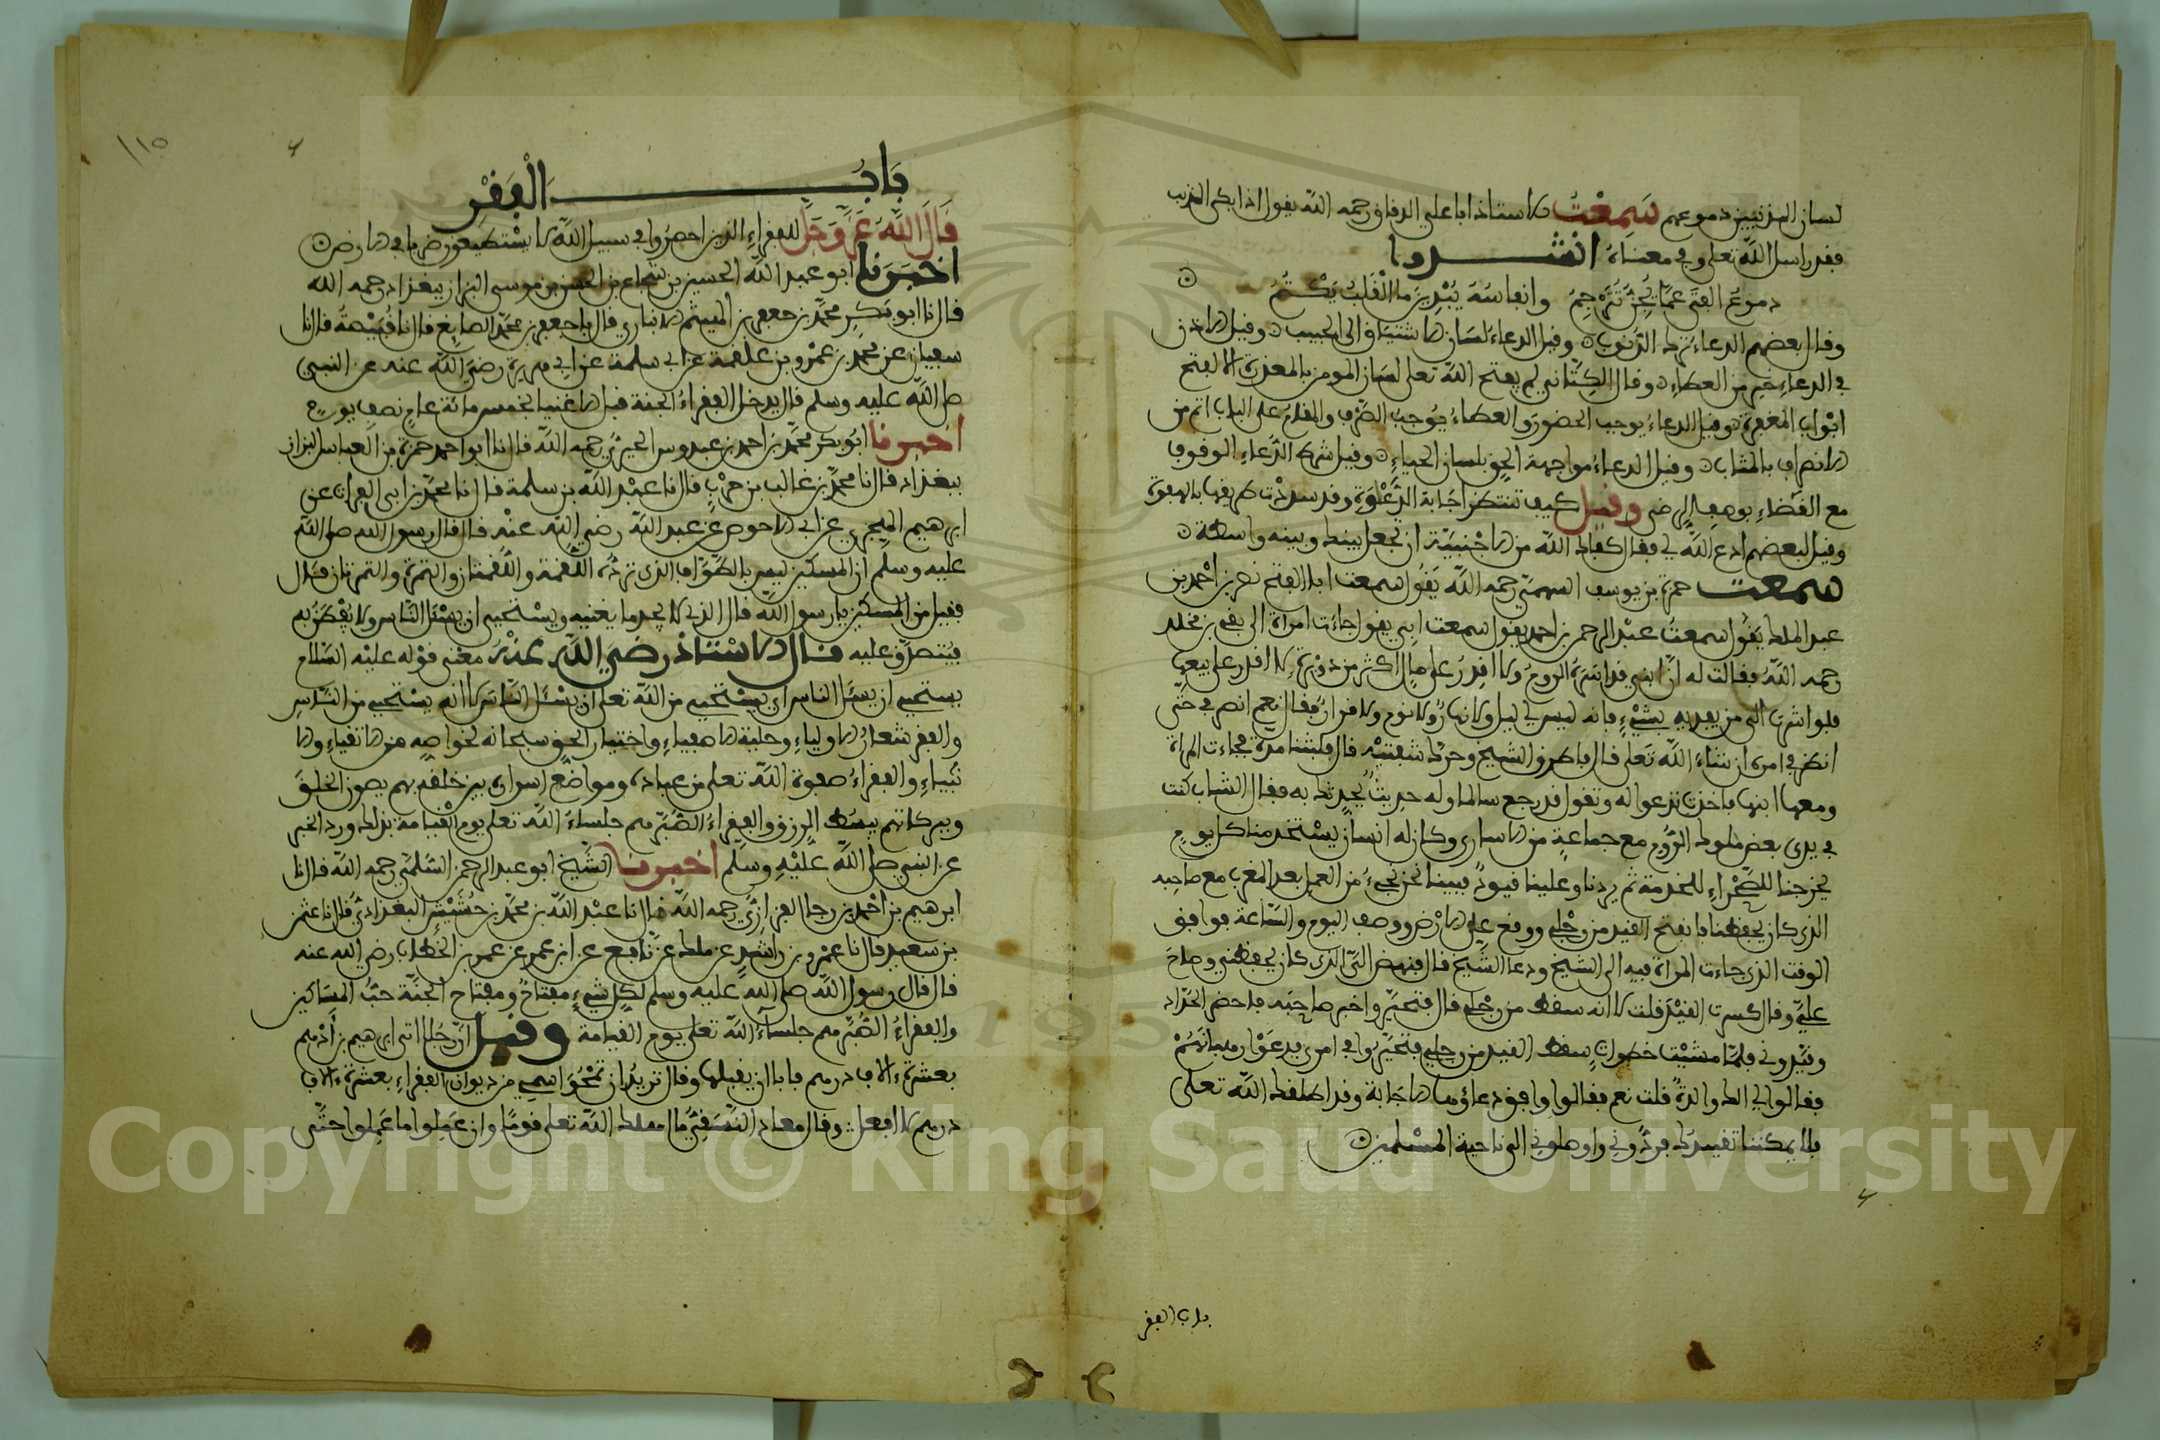 لسان المذنبين دموعهم سَمِعْتُ الاستاذ ابا علي الدقاق رحمه الله يقول اذا بكى المذنب
فقد راسل الله تعلى وفي معناهُ انشدوا
دموعُ الفتى عمّا يُجِنُّ تُتَرْجِمُ وانفاسُهُ يُبْدِينَ ما الْقَلْبُ يَكْتُمُ
وقال بعضهم الدعاء ترك الذّنوب وقيل الدعاءُ لسَان الاشتياق الى الحبيب وقيل الاذن
في الدعاءِ خير من العطاء وقال الكِتّاني لم يفتح الله تعلى لسَان المومن بالمعذرة الا لفتح
ابْوَابِ المغفرة وقيل الدعاءُ يوجب الحضورَ والعطاءُ يُوجبُ الصّرْف والمقامُ على الباب اتم من
الانصراف بالمثاب وقيل الدعاءُ مواجهة الحق بلسان الحياءِ وقيل شرط الدّعاءِ الوقوف
مع القضاء بوصفِ الرضى وقيل كيف تنتظر اجَابة الدَّعْوَةِ وقد سددْت طريقها بالهفوة
وقيل لبعضهم ادع الله لي فقال كفاك الله من الاجْنبيّة ان تجعل بينك وبينه واسطة
سمعت حمزة بن يوسف السهمي رحمه الله يَقُول سمعت ابا الفتح نصر بن احْمد بن
عبد الملك يَقُول سمعتُ عبْد الرحمن بن احمد يقول سمعت ابي يقول جاءَت امراة الى بقي بن مخلد
رحمه الله فقالت له انّ ابني قد اسَرَهُ الرومُ ولا اقدرُ على مال اكثر من دوَيْرة لا اقدر على بيعِها
فلو اشرت الى من يفديه بشيْءٍ فانه ليس لي ليل ولا نهارُ ولا نوم ولا قرارُ فقال نعم انصرفي حتّى
انظر في امره ان شاء الله تَعَلى قال فاطرق الشيخ وحرّك شفتيْه قال فلبثنا مدة فجاءت المراة
ومعها ابنها فاخذت تدعوا له وتقول قد رجع سالما وله حديثُ يُحدِثك به فقال الشاب كنت
في يدي بعض ملوك الرُّوم مع جماعةٍ من الاسارى وكان له انسان يسْتخدمنا كل يوم
يخرجنا للصَّحْراءِ للخدمة ثم يردنا وعلينا قيودُ فبينا نحن نجيءُ من العمل بعد المغرب مع صاحبه
الذي كان يحفظنا فانفتح القيد من رجْلي ووقع على الاَرْض ووصف اليوم والسّاعة فوافق
الوقت الذي جاءت المراة فيه الى الشيخ ودعا الشّيخ قال فنهض اليّ الذي كان يحفظني وصاحَ
عليّ وقال كسرت القيْد قلت لا انه سقط من رجْلي قال فتحيّر واخبر صاحبَه فاحضر الحدّاد
وقيّدوني فلمّا مشيْت خطوات سقط القيد من رجلي فتحيّروا في امري فدعَوْا رهبانَهُمْ
فقالوا لي الك والدةٌ قلت نعم فقالوا وافق دعاؤها الاجَابة وقد اطلقك الله تعلى
فلا يمكننا تقييدك فردّوني واوصلوني الى ناحية المسْلمين
باب الفقر
١١٥
بَابُ الْفَقْرِ
قَالَ اللّهُ عَزَّ وَجَلَّ للفقراءِ الذين احصرُوا في سبيل الله لا يسْتطيعون ضربا في الارض
اخبَرَنا ابو عبد الله الحسين بن شجاع بن الحسن بن موسى البزاز ببغداد رحمه الله
قال انا ابو بَكرِ محمّد بن جعفر بن الهيثم الانباري قال نا جعفر بن محمّد الصايغ قال نا قُبَيْصةُ قال نا
سفيان عن محمد بن عمْرو بن علقمة عن ابي سلمة عن ابي هريرة رضي الله عنه عن النبي
صلى الله عليه وسلم قال يدخل الفقراءُ الجنة قبل الاغنيا بخمس مائة عامٍ نصفِ يومٍ
اخبرنا ابو بكر محمّد بن احمد بن عبدوس الحيري رحمه الله قال انا ابو احمد حمزة بن العباس البزاز
ببغداد قال نا محمّد بن غالب بن حرْبٍ قال نا عبْد الله بن سلمة قال نا محمّد بن ابي الفرات عن
ابرهيم الهجري عن ابي الاحوص عن عبد الله رضي الله عنْه قال قال رسول الله صلى الله
عليه وسلم ان المسكين ليس بالطَّوّاف الذي تردُّه اللُّقمة واللُّقمتان والتمرة والتمرتان قال
فقيل من المسكين يا رسول الله قال الذي لا يجد ما يغنيه ويسْتحيي ان يسْئل النّاس ولا يُفْطَن به
فيُتصدّق عليه قال الاسْتاذ رضي الله عنْه معْنى قوْله عليْه السّلام
يستحيي ان يسئل الناس اي يسْتحيي من الله تعلى ان يسْئل النّاسَ لا انه يسْتحيي من النّاسِ
والفقر شعارُ الاولياءِ وحلية الاصفياءِ واختيار الحق سبحانه لخواصِه من الاتقياءِ والا
نبياءِ والفقراءُ صفوة الله تعلى من عباده ومواضع اسراره بين خلقه بهم يصون الخلقَ
وببركاتهم يبسُط الرزق والفقراءُ الصُّبّر هم جلساءُ الله تعلى يوم القيامة بذلك ورد الخبر
عن النبي صلى الله عليْهِ وسَلم اخبرنا الشّيخ ابو عبد الرحمن السّلمي رحمه الله قال انا
ابرهيم بن احْمد بن رجا الفزاري رحمه الله قال نا عبْد الله بن محمّد بن حُشَيْش البغدادي قال نا عثمن
بن سعيد قال نا عمْرو بن راشدٍ عن ملك عن نافع عن ابن عمر عن عمر بن الخطاب رضي الله عنه
قال قال رسول الله صلى الله عليه وسلم لكل شيءٍ مفتاحُ ومفتاح الجنّة حبُّ المسَاكين
والفقراءُ الصُّبّر هم جلساءُ الله تعلى يوم القيامة وقيل انّ رجُلا اتى ابرهيم بن اَدْهم
بعشرة ءالاف درهم فابا ان يقبلها وقال تريدُ ان تمْحُوَ اسمي من ديوان الفقراءِ بعشرة ءالاف
درهم لا افعل وقال معاذ النّسَفيُّ ما اهلك الله تعلى قومًا وان عَمِلُوا ما عَمِلوا حتّى